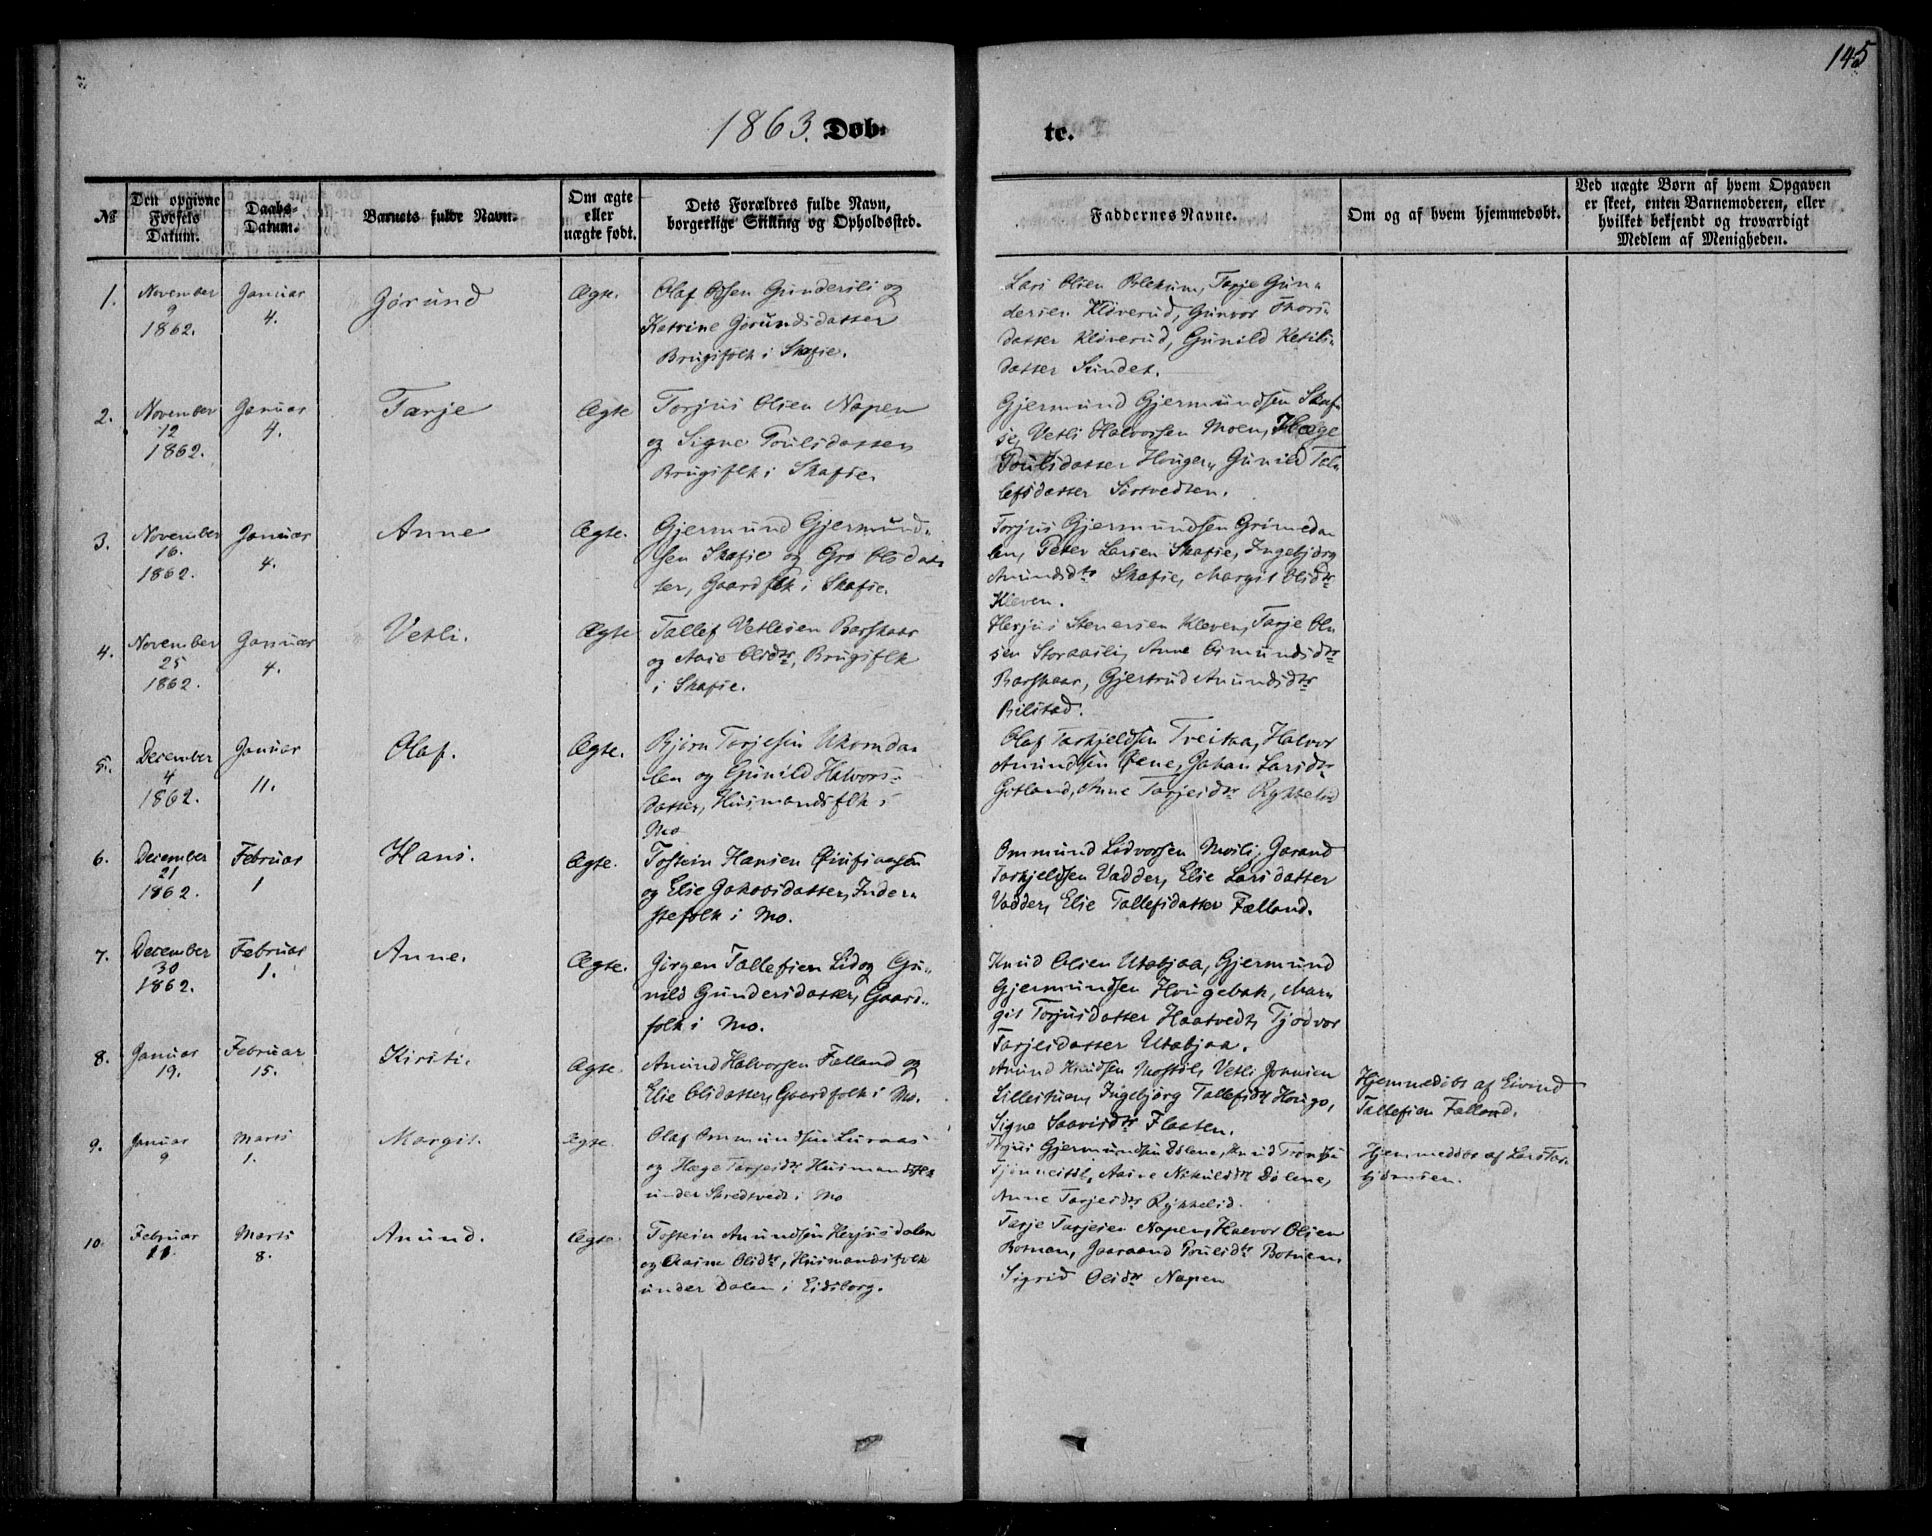 145
1863. Døb-
te.
№
Den opgivne
Fødsels
Datum.
Daabs-
Datum.
Barnets fulde Navn.
Om ægte
eller
uægte født.
Dets Forældres fulde Navn,
borgerlige Stilling og Opholdssted.
Faddernes Navne.
Om og af hvem hjemmedøbt.
Ved uægte Børn af hvem Opgaven
er skeet, enten Barnemoderen, eller
hvilket bekjendt og troværdigt
Medlem af Menigheden.
1.
November
9
1862.
Januar
4.
Jørund
Ægte.
Olaf Olsen Gundersli og
Katrine Jørundsdatter
Brugsfolk i Skafse.
Lars Olsen Tarje Gun-
dersen Kløverud, Gunvor Thors-
datter Kløverud, Gunild Ketils-
datter Sundet.
2.
November
12
1862.
Januar
4.
Tarje
Ægte
Torjus Olsen Napen
og Signe Poulsdatter
Brugsflk i Skafse.
Gjermund Gjermundsen Skaf-
se, Vetli Halvorsen Moen, Hæge
Poulsdatter Hougen, Gunild Tal-
lefsdatter Sørtvedten.
3.
November
16.
1862.
Januar
4.
Anne
Ægte.
Gjermund Gjermund-
sen Skafse og Gro Olsdat-
ter, Gaardflk i Skafse.
Torjus Gjermundsen Grimeda-
len, Peter Larsen Skafse, Ingebjørg
Anundsdtr Skafse, Margit Olsdtr
Kleven.
4.
November
25
1862.
Januar
4.
Vetli.
Ægte
Tallef Vetlesen Barskaar
og Aase Olsdtr, Brugsflk
i Skafse.
Herjus Stenersen Kleven, Tarje Ol-
sen Storaasli, Anne Osmundsdtr
Barskaar, Gjertrud Anundsdtr
Bilstad.
5.
December
4
1862.
Januar
11.
Olaf.
Ægte.
Bjørn Tarjesen Uvomda-
len og Gunild Halvors-
datter, Husmandsflk i
Mo
Olaf Tarkjeldsen Treitaa, Halvor
Anundsen Øene, Johan Larsdtr
Gotland, Anne Tarjeisdtr Rykkelid
6.
December
21
1862.
Februar
1
Hans.
Ægte.
Tostein Hansen
og Elie Jakobsdatter, Inder-
stefolk i Mo.
Ommund Lidvorsen Mosli, Jorand
Tarkjeldsen Vadder, Elie Larsdatter
Vadder, Elie Tallefsdatter Fælland.
7.
December
30
1862.
Februar
1.
Anne.
Ægte.
Jørgen Tallefsen Lid og Gu-
nild Gundersdatter, Gaard-
folk i Mo.
Knud Olsen Utabjaa, Gjermund
Gjermundsen Hougebak, Mar-
git Torjusdatter Haatvedt, Tjodvor
Tarjeisdatter Utabjaa.
8.
Januar
19.
Februar
15.
Kirsti.
Ægte.
Anund Halvorsen Fælland og
Elie Olsdatter, Gaardfolk i Mo.
Anund Knudsen Mostøl, Vetli Jonnsen
Lillestuen, Ingebjørg Tallefsdtr Hougo,
Signe Saavisdtr Flaaten.
Hjemmedøbt af Eivind
Tallefsen Fælland.
9.
Januar
9
Marts
1.
Margit.
Ægte.
Olaf Ommundsen Luraas
og Hæge Tarjeisdtr Husmandsflk
under Skredtvedt i Mo
Torjus Gjermundsen Dølene, Knud Trondsen
Tjønnestøl, Aase Nikulsdtr Dølene,
Anne Tarjeisdtr Rykkelid.
Hjemmedøbt af Lars Tor-
bjørnsen.
10.
Februar
11.
Marts
8.
Anund.
Ægte.
Tostein Anundsen Herjusdalen
og Aasne Olsdtr, Husmandsfolk
under Dalen i Eidsborg.
Tarje Tarjesen Napen, Halvor Olsen
Botnan, Jaaraand Poulsdtr Botnen,
Sigrid Olsdtr Napen